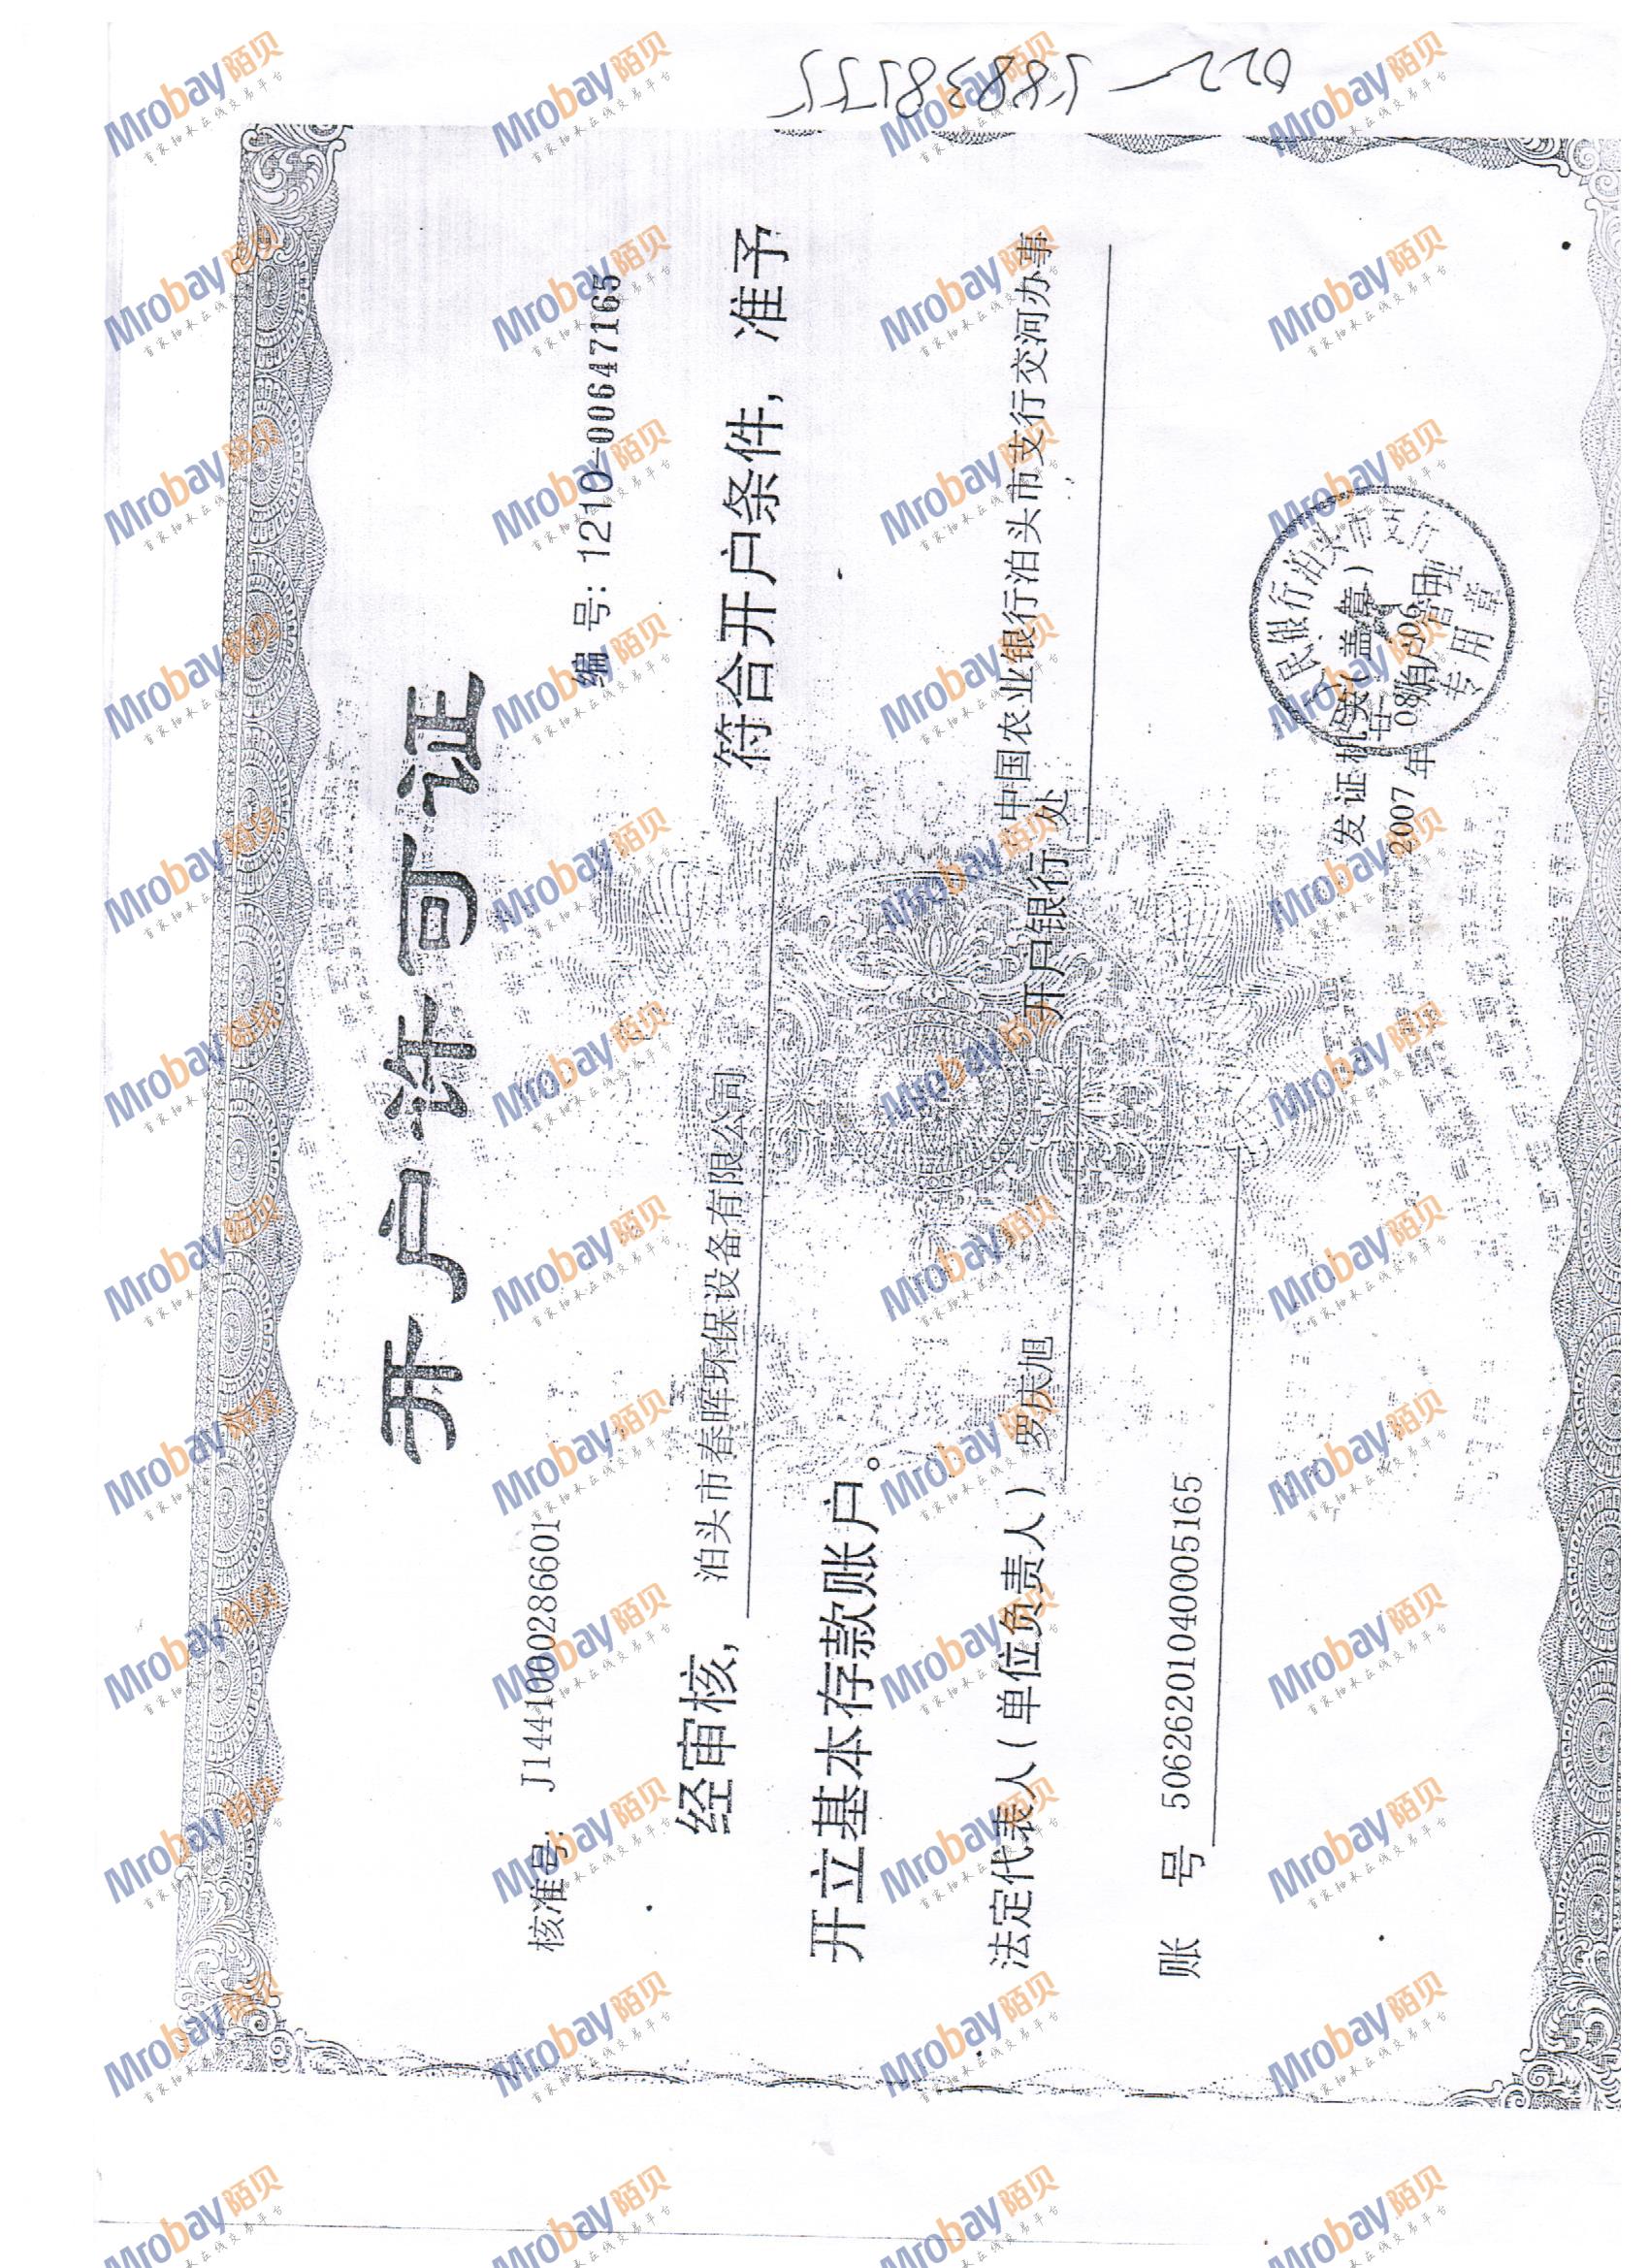 022-58838155
开户许可证
核准号: J1441000286601
编号: 1210-00647165
经审核, 泊头市春晖环保设备有限公司 符合开户条件, 准予
开立基本存款账户。
法定代表人(单位负责人) 罗庆旭 开户银行 中国农业银行泊头市支行交河办事
处
账 号 506262010400005165
发证机关(盖章)
2007年08月06日
人民银行泊头市支行
账户管理
专用章
Mrobay陌贝
首家轴承在线交易平台